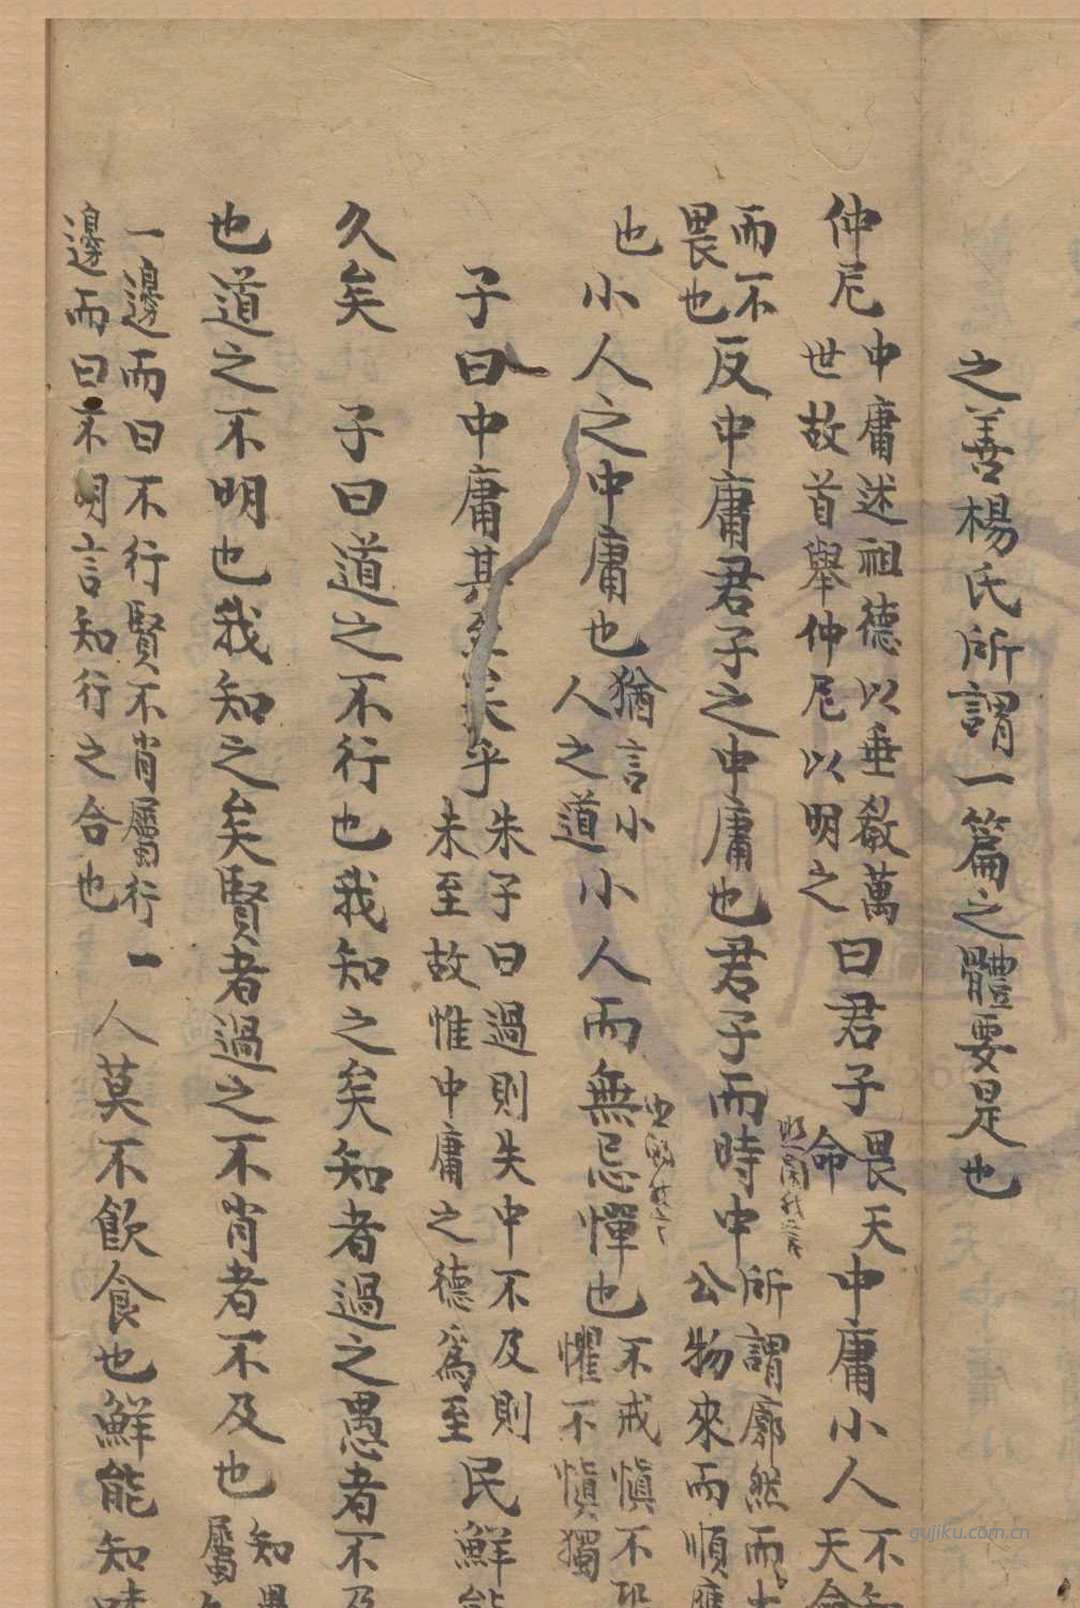 之善楊氏所謂一篇之體要是也
仲尼中庸述祖德以垂教萬世故首舉仲尼以明之曰君子畏天命中庸小人不知天命
而不畏也反中庸君子之中庸也君子而時中所謂廓然而大公物來而順應
也小人之中庸也猶言小人之道小人而無忌憚也不戒慎不恐懼不慎獨
子曰中庸其至矣乎朱子曰過則失中不及則未至故惟中庸之德爲至民鮮能
久矣 子曰道之不行也我知之矣知者過之愚者不及
也道之不明也我知之矣賢者過之不肖者不及也知愚屬
一邊而曰不行賢不肖屬行一邊而曰不明言知行之合也人莫不飲食也鮮能知味
gujiku.com.cn